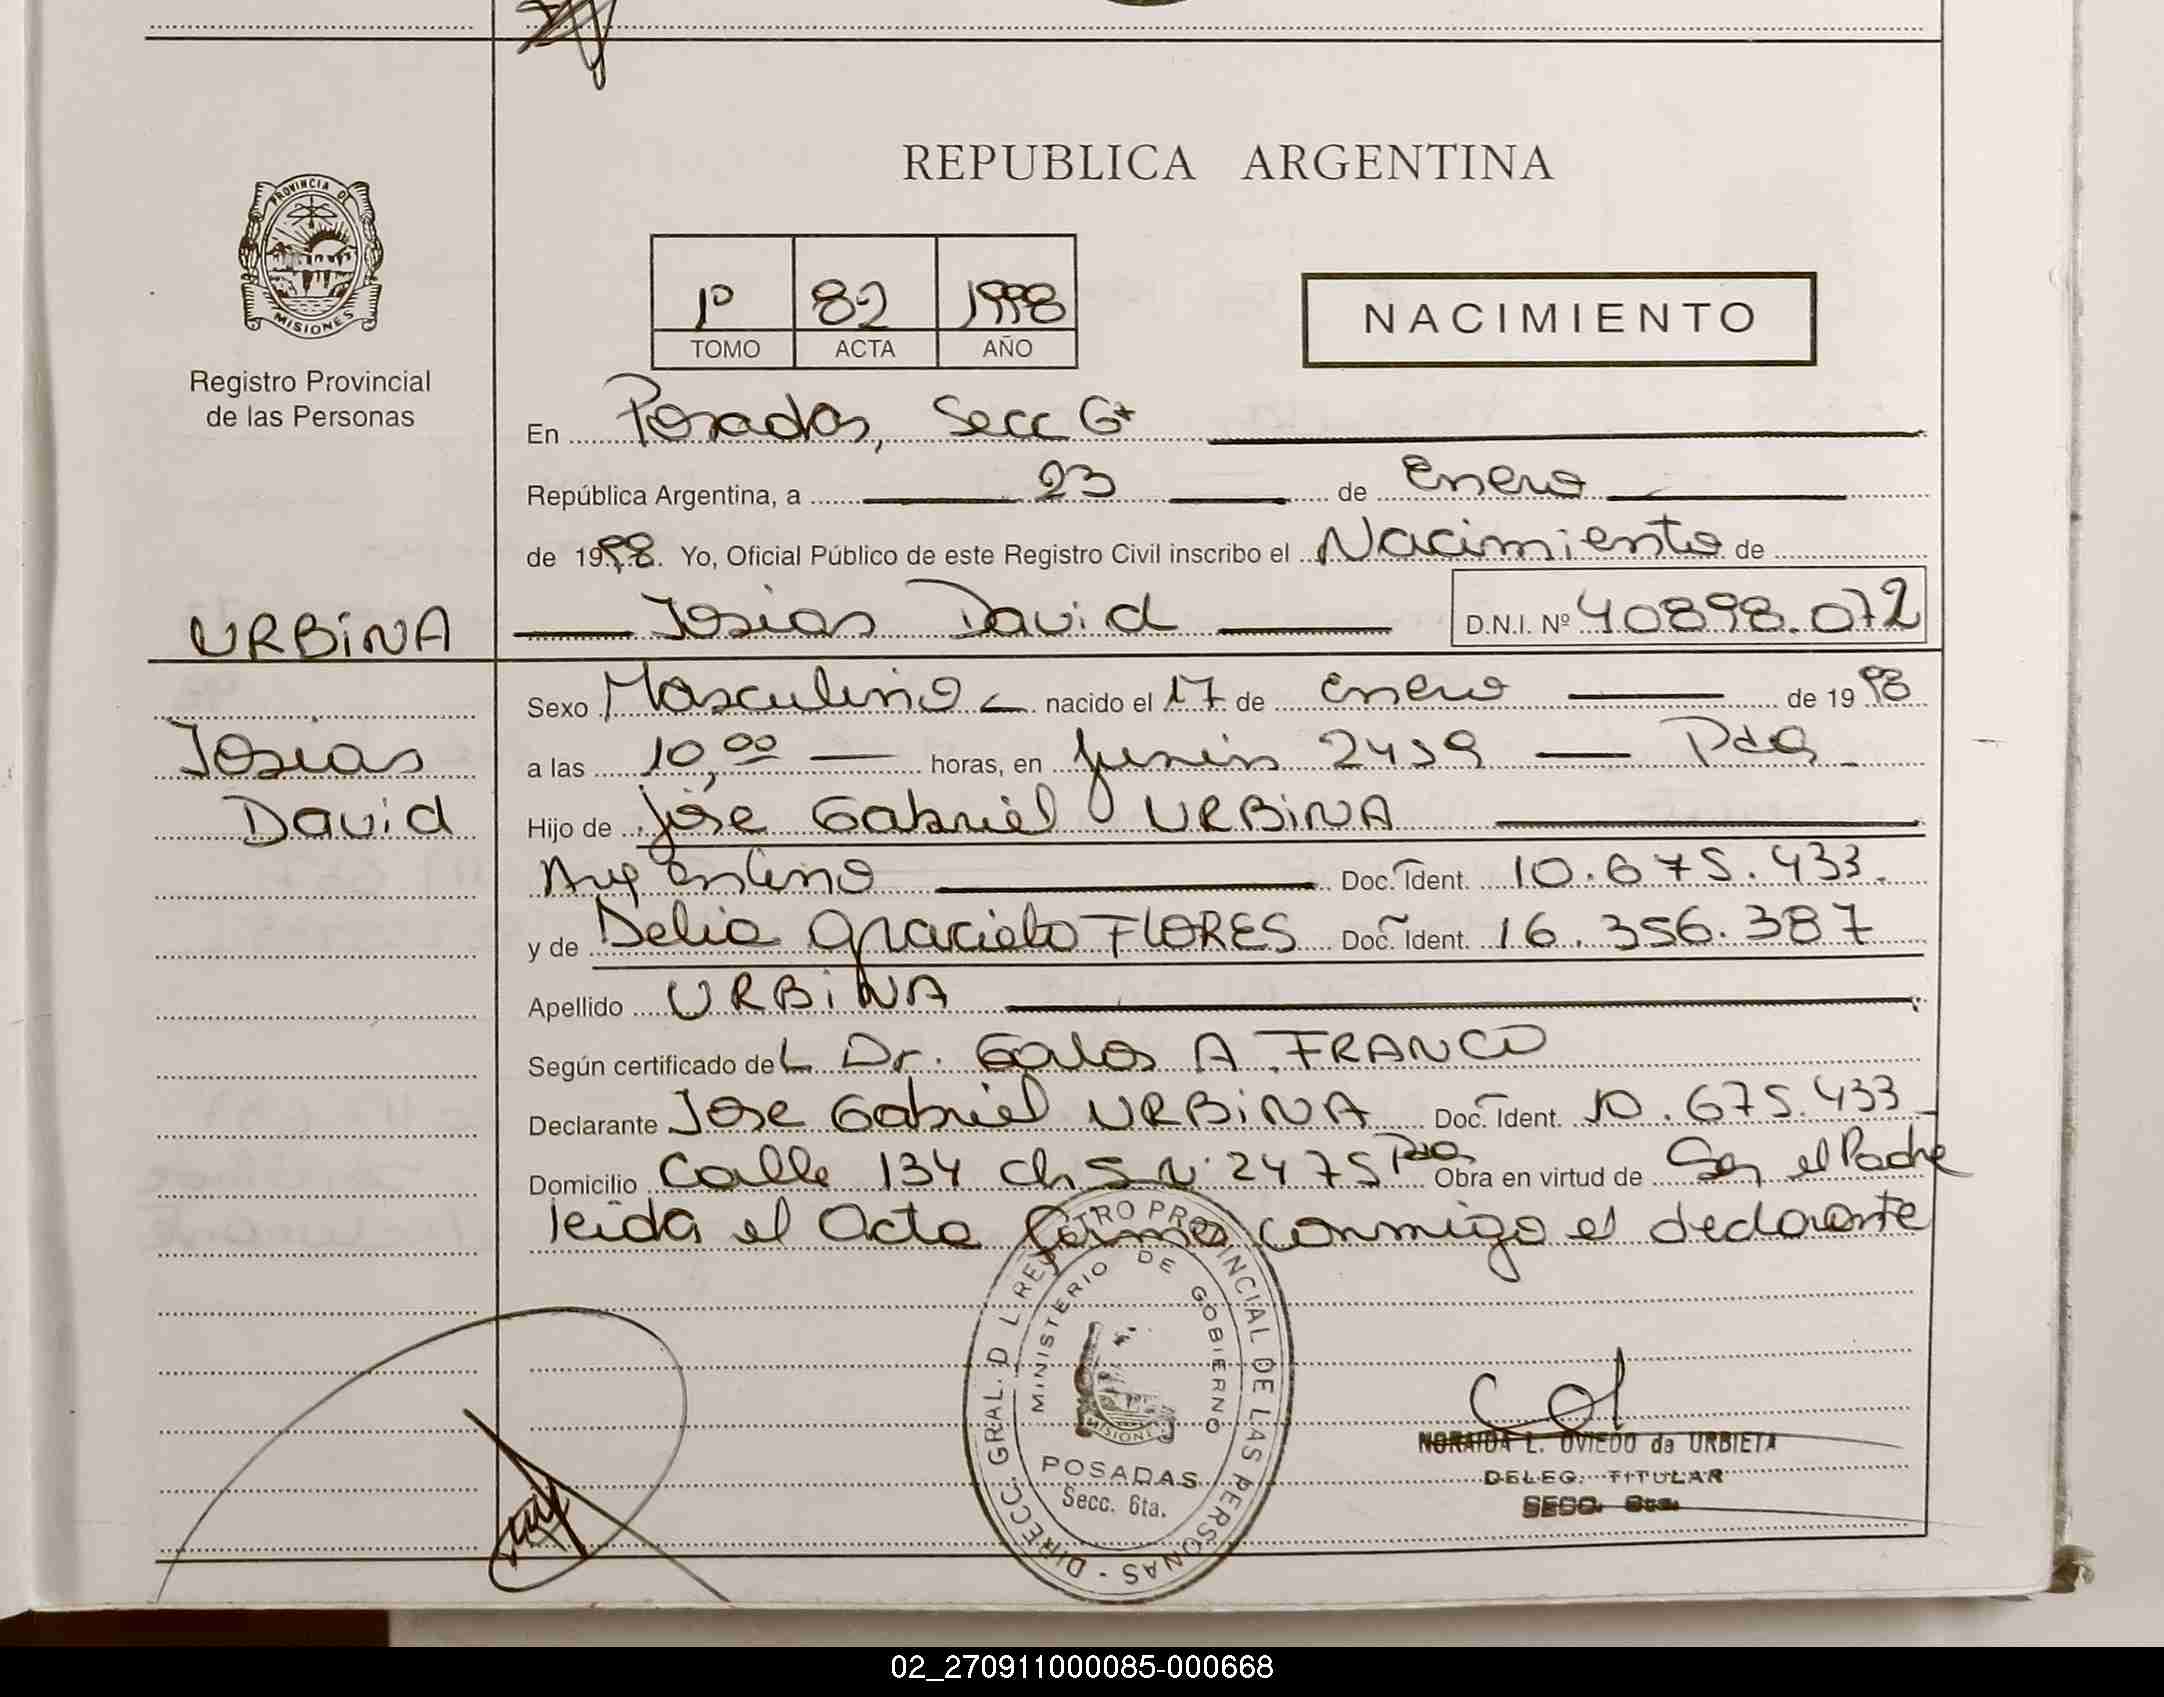 REPUBLICA ARGENTINA
PROVINCIA DE
MISIONES
Registro Provincial
de las Personas
1º 82 1998
TOMO ACTA AÑO
NACIMIENTO
En Posadas, Secc 6ª
República Argentina, a 23 de Enero
de 1998. Yo, Oficial Público de este Registro Civil inscribo el Nacimiento de
URBINA
Josias David D.N.I. Nº 40898.072
Sexo Masculino nacido el 17 de enero de 19 98
Josias
David
a las 10,00 horas, en Junin 2459 Pdas
Hijo de José Gabriel URBINA
Argentino Doc. Ident. 10.675.433.
y de Delia Graciela FLORES Doc. Ident. 16.356.387
Apellido URBINA
Según certificado del Dr. A. FRANCO
Declarante Jose Gabriel URBINA Doc. Ident. 10.675.433
Domicilio Calle 134 ch S Nº 2475 Pdas Obra en virtud de Ser el Padre
leida el Acta firma conmigo el declarante
DIRECC. GRAL. D L REGISTRO PROVINCIAL DE LAS PERSONAS -
MINISTERIO DE GOBIERNO
MISIONES
POSADAS
Secc. 6ta.
NORAIDA L. OVIEDO de URBIETA
DELEG. TITULAR
SECC. 6ta.
02_270911000085-000668